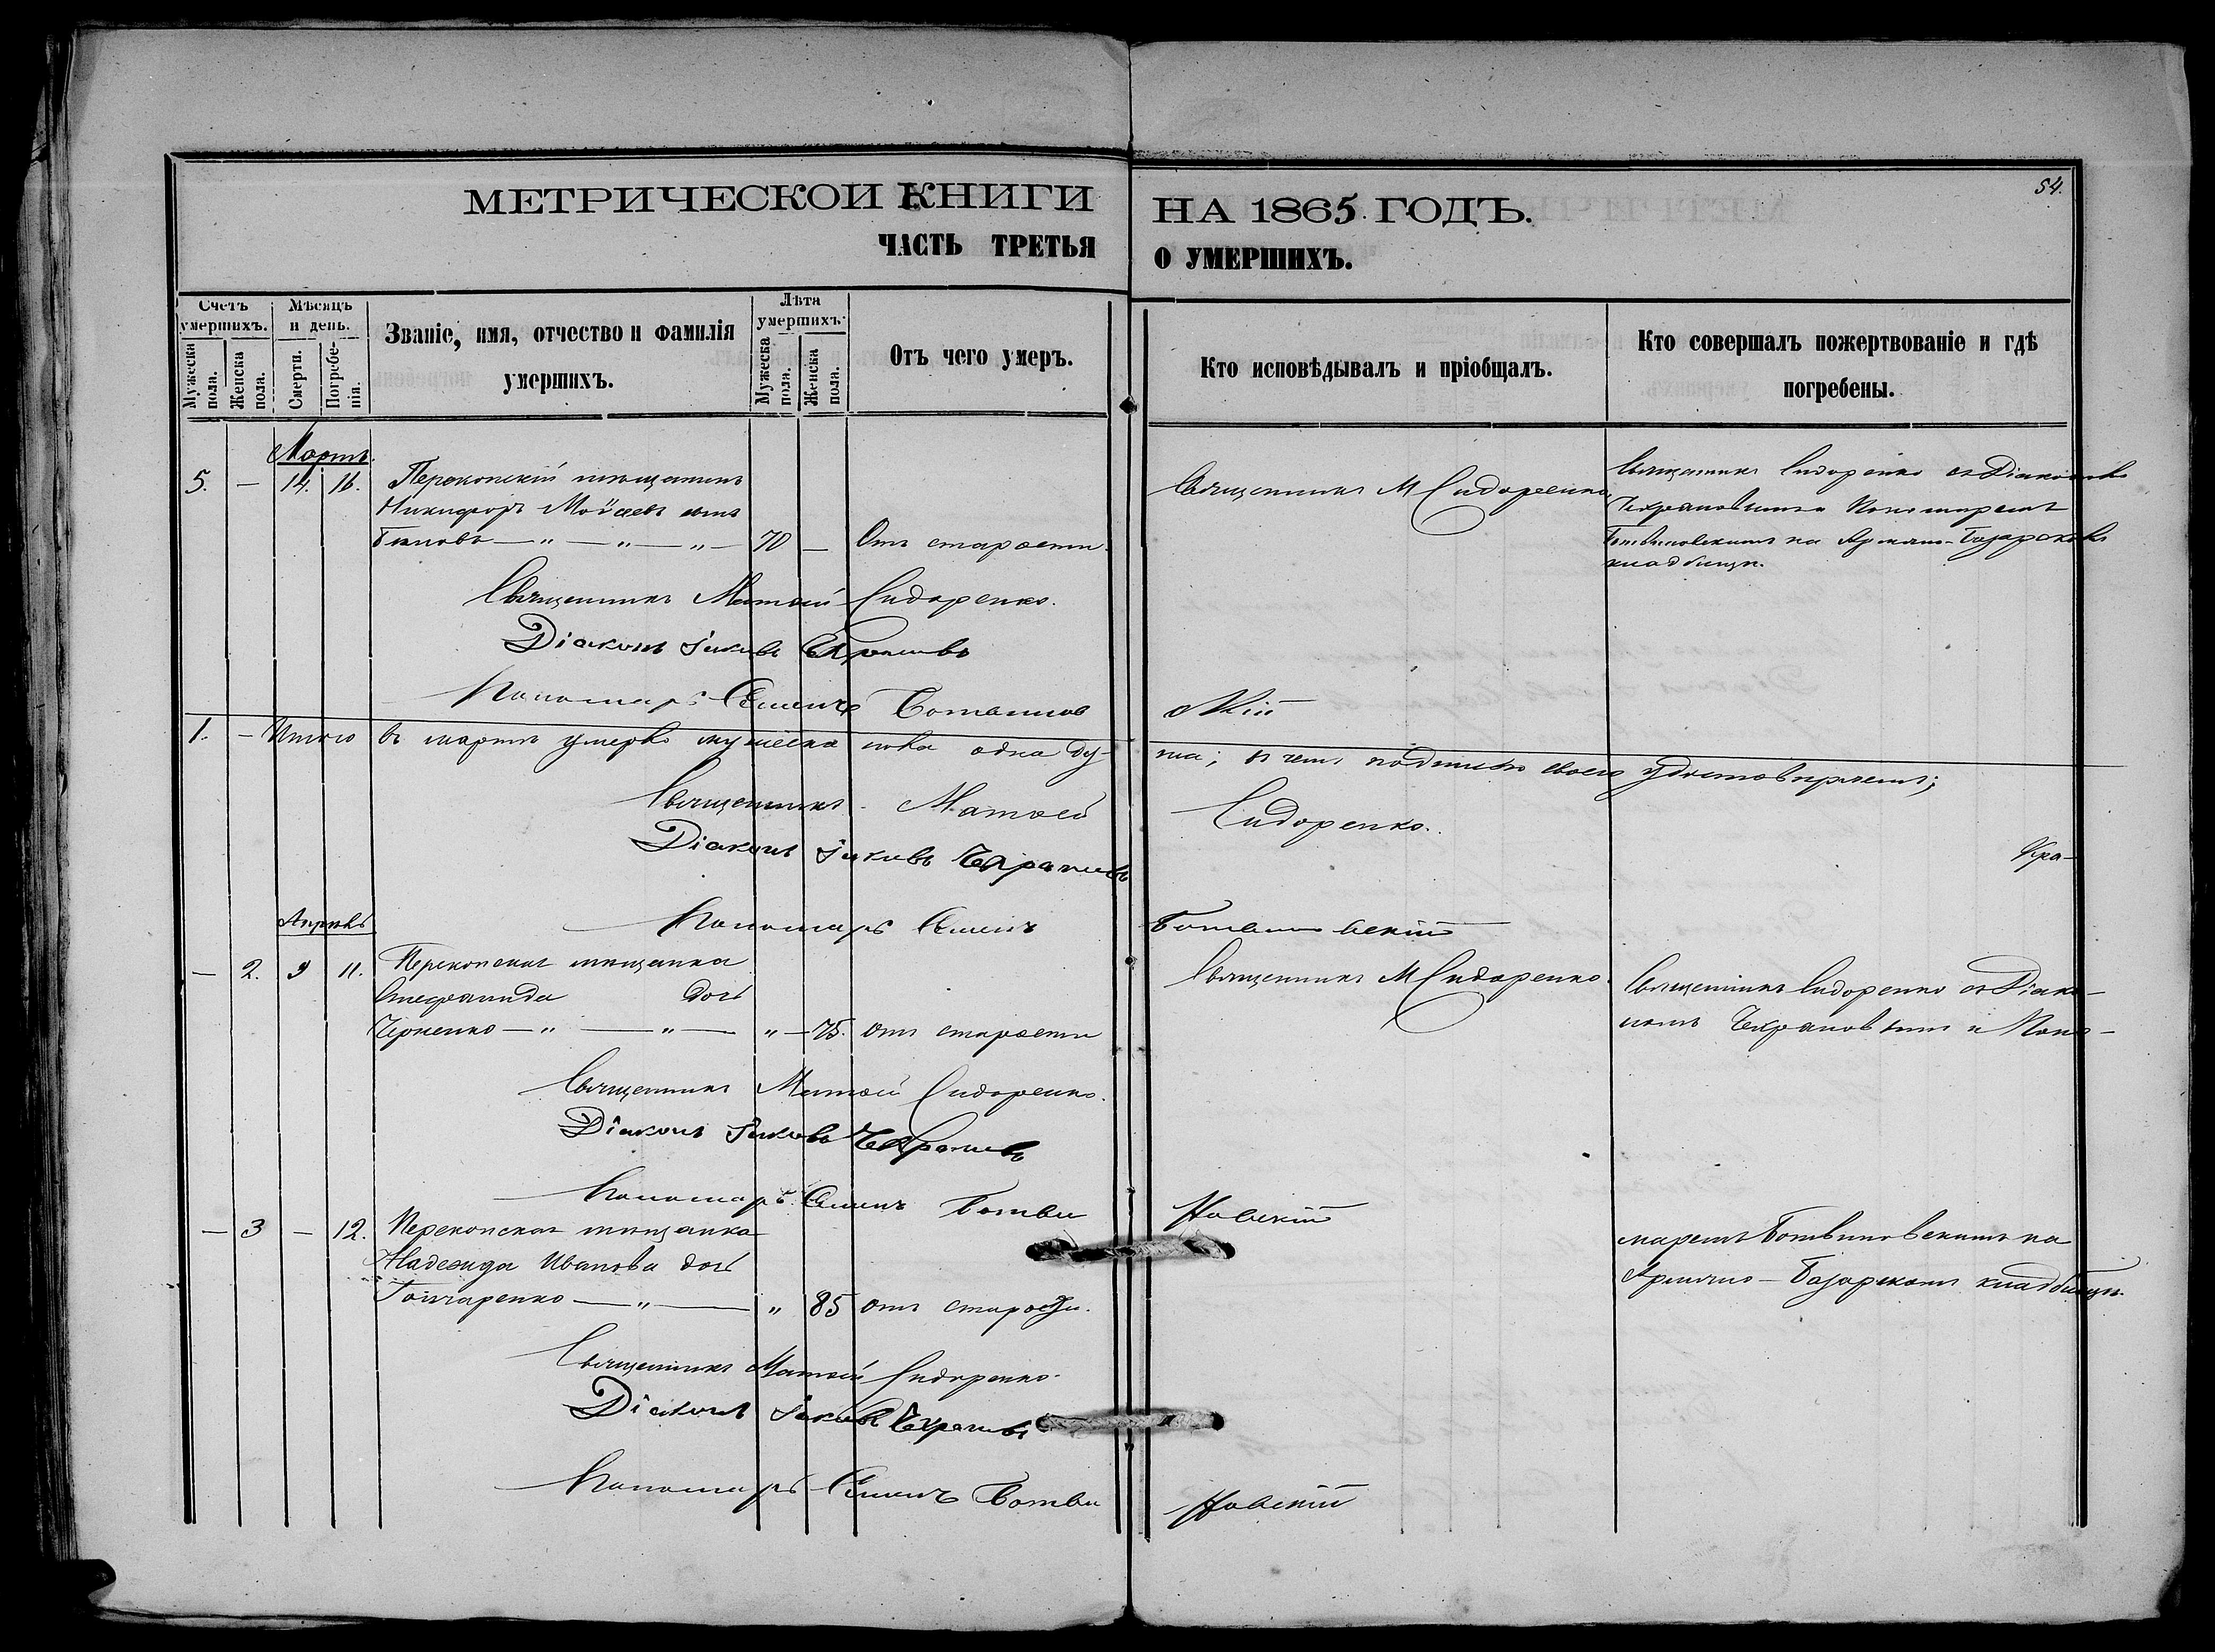 МЕТРИЧЕСКОЙ КНИГИ НА 1865 ГОДЪ.
ЧАСТЬ ТРЕТЬЯ О УМЕРШИХЪ.
54.
Счетъ умершихъ.
Мужеска пола.
Женска пола.
Мѣсяцъ и день.
Смерти.
Погребенія.
Званіе, имя, отчество и фамилія умершихъ.
Лѣта умершихъ.
Мужеска пола.
Женска пола.
Отъ чего умеръ.
Кто исповѣдывалъ и пріобщалъ.
Кто совершалъ пожертвованіе и гдѣ погребены.
Мартъ.
5. — 14. 16. Перекопскій мѣщанинъ
Никифоръ Моѵсеевъ сынъ
— „ — „ — „ — 70 — Отъ старости.
Священникъ М Сидоренко
Священникъ Сидоренко съ Діакономъ
и Пономаремъ
Ботвиновскимъ на Армяно-Базарскомъ
кладбищѣ.
Священникъ Матѳей Сидоренко.
Діаконъ Іаковъ
Пономарь Семенъ Ботвинов
скій
1. — Итого въ мартѣ умерло мужеска пола одна ду-
ша; въ чемъ подписью своею удостовѣряемъ;
Священникъ Матѳей Сидоренко.
Діаконъ Іаковъ
Пономарь Семенъ Ботвиновскій
Апрѣль
— 2. 9 11. Перекопская мѣщанка
Степанида дочь
Черненко — „ — „ — „ — 75. отъ старости
Священникъ М Сидоренко.
Священникъ Сидоренко съ Діако-
номъ и Поно-
Священникъ Матѳей Сидоренко.
Діаконъ Іаковъ
Пономарь Семенъ Ботви
новскій
— 3 — 12. Перекопская мѣщанка
Надежда Иванова дочь
Гончаренко — „ — „ 85 отъ старости.
маремъ Ботвиновскимъ на
Армяно-Базарскомъ кладбищѣ.
Священникъ Матѳей Сидоренко.
Діаконъ Іаковъ
Пономарь Семенъ Ботви
новскій